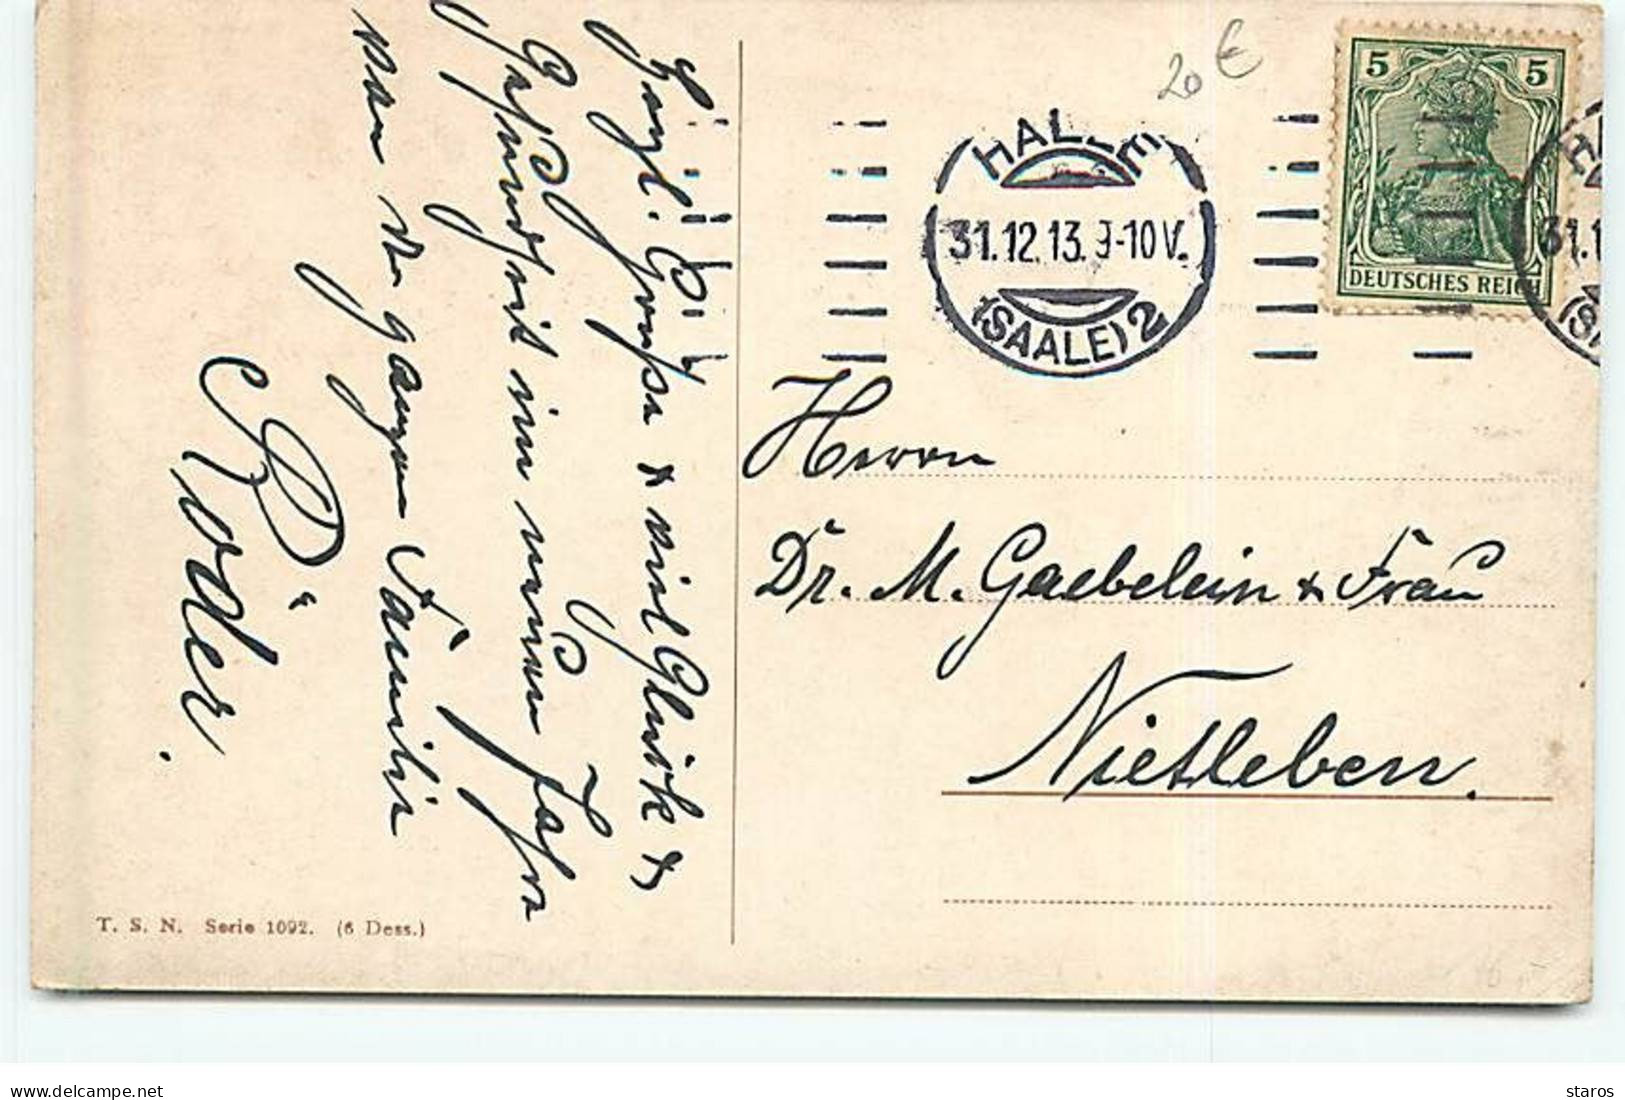 Herzl. Grüsse & viel Glück &
Gesundheit im neuen Jahre
von der ganzen Familie
Röder.
T. S. N. Serie 1092. (6 Dess.)
20 €
5 5
DEUTSCHES REICH
HALLE
31.12.13. 9-10V.
(SAALE) 2
Herrn
Dr. M. Gaebelein & Frau
Nietleben.
delcampe.net
staros